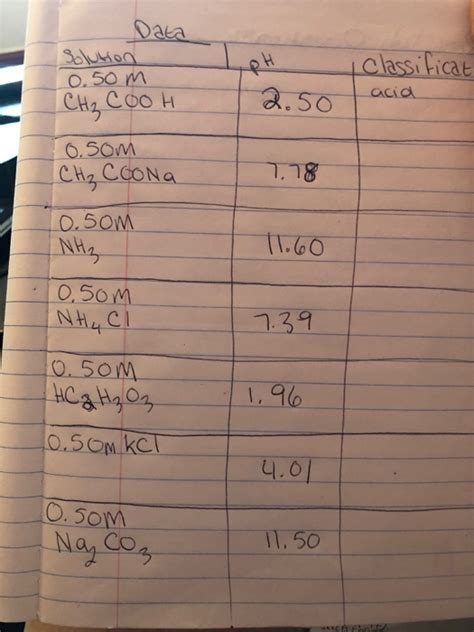 Data
Solution pH Classificat
0.50 M
CH3 COO H 2.50 acid
0.50M
CH3 COONa 7.78
0.50M
NH3 11.60
0.50M
NH4 Cl 7.39
0.50M
HC2H3O3 1.96
0.50M KCl
4.01
0.50M
Na2 CO3 11.50